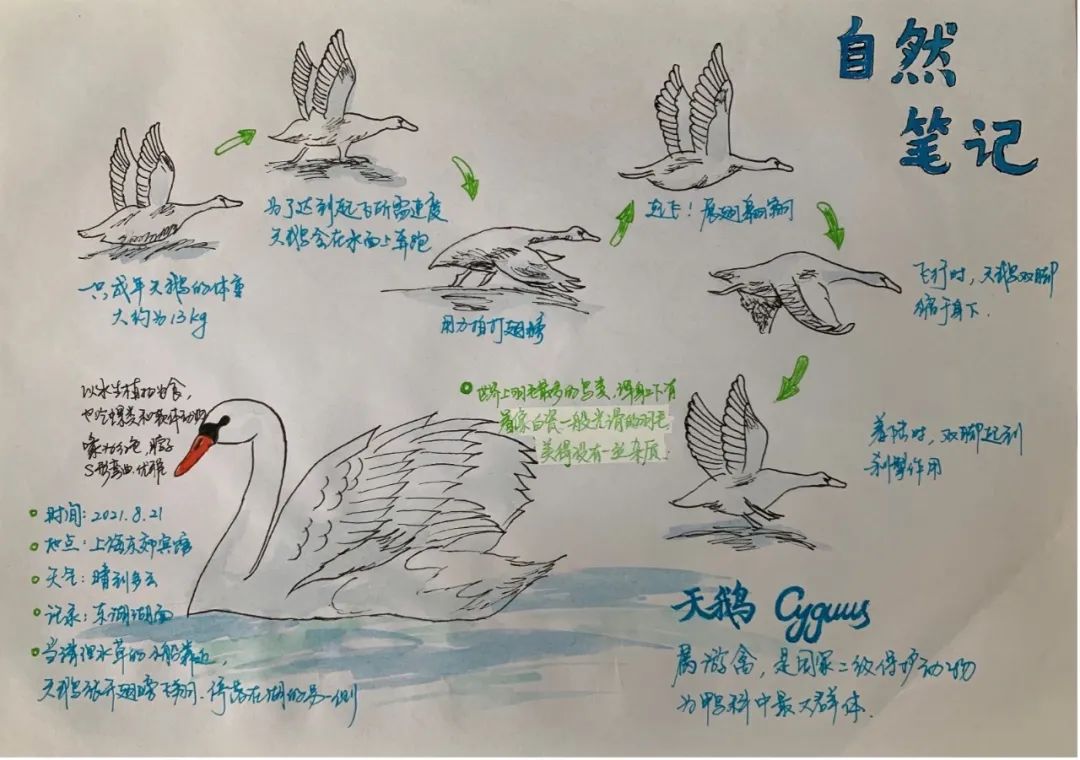 自然
笔记
一只成年天鹅的体重
大约为13kg
为了达到起飞所需速度
天鹅会在水面上奔跑
用力拍打翅膀
起飞！展翅翱翔
飞行时，天鹅双脚
缩于身下.
着陆时，双脚起到
刹车作用
以水生植物为食，
也吃螺类和软体动物
嘴为红色，脖子
S形弯曲，优雅
世界上羽毛最多的鸟类，浑身上下有
着像白瓷一般光滑的羽毛
美得没有一丝杂质.
时间：2021.8.21
地点：上海东郊宾馆
天气：晴到多云
记录：东湖湖面
当清理水草的小船靠近，
天鹅张开翅膀 停落在湖的另一侧
天鹅 Cygnus
属游禽，是国家二级保护动物
为鸭科中最大群体.